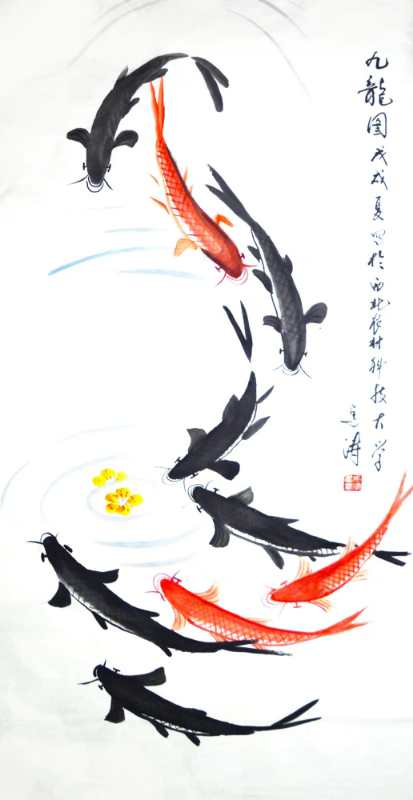 九龍图戊戌夏写於西北农林科技大学